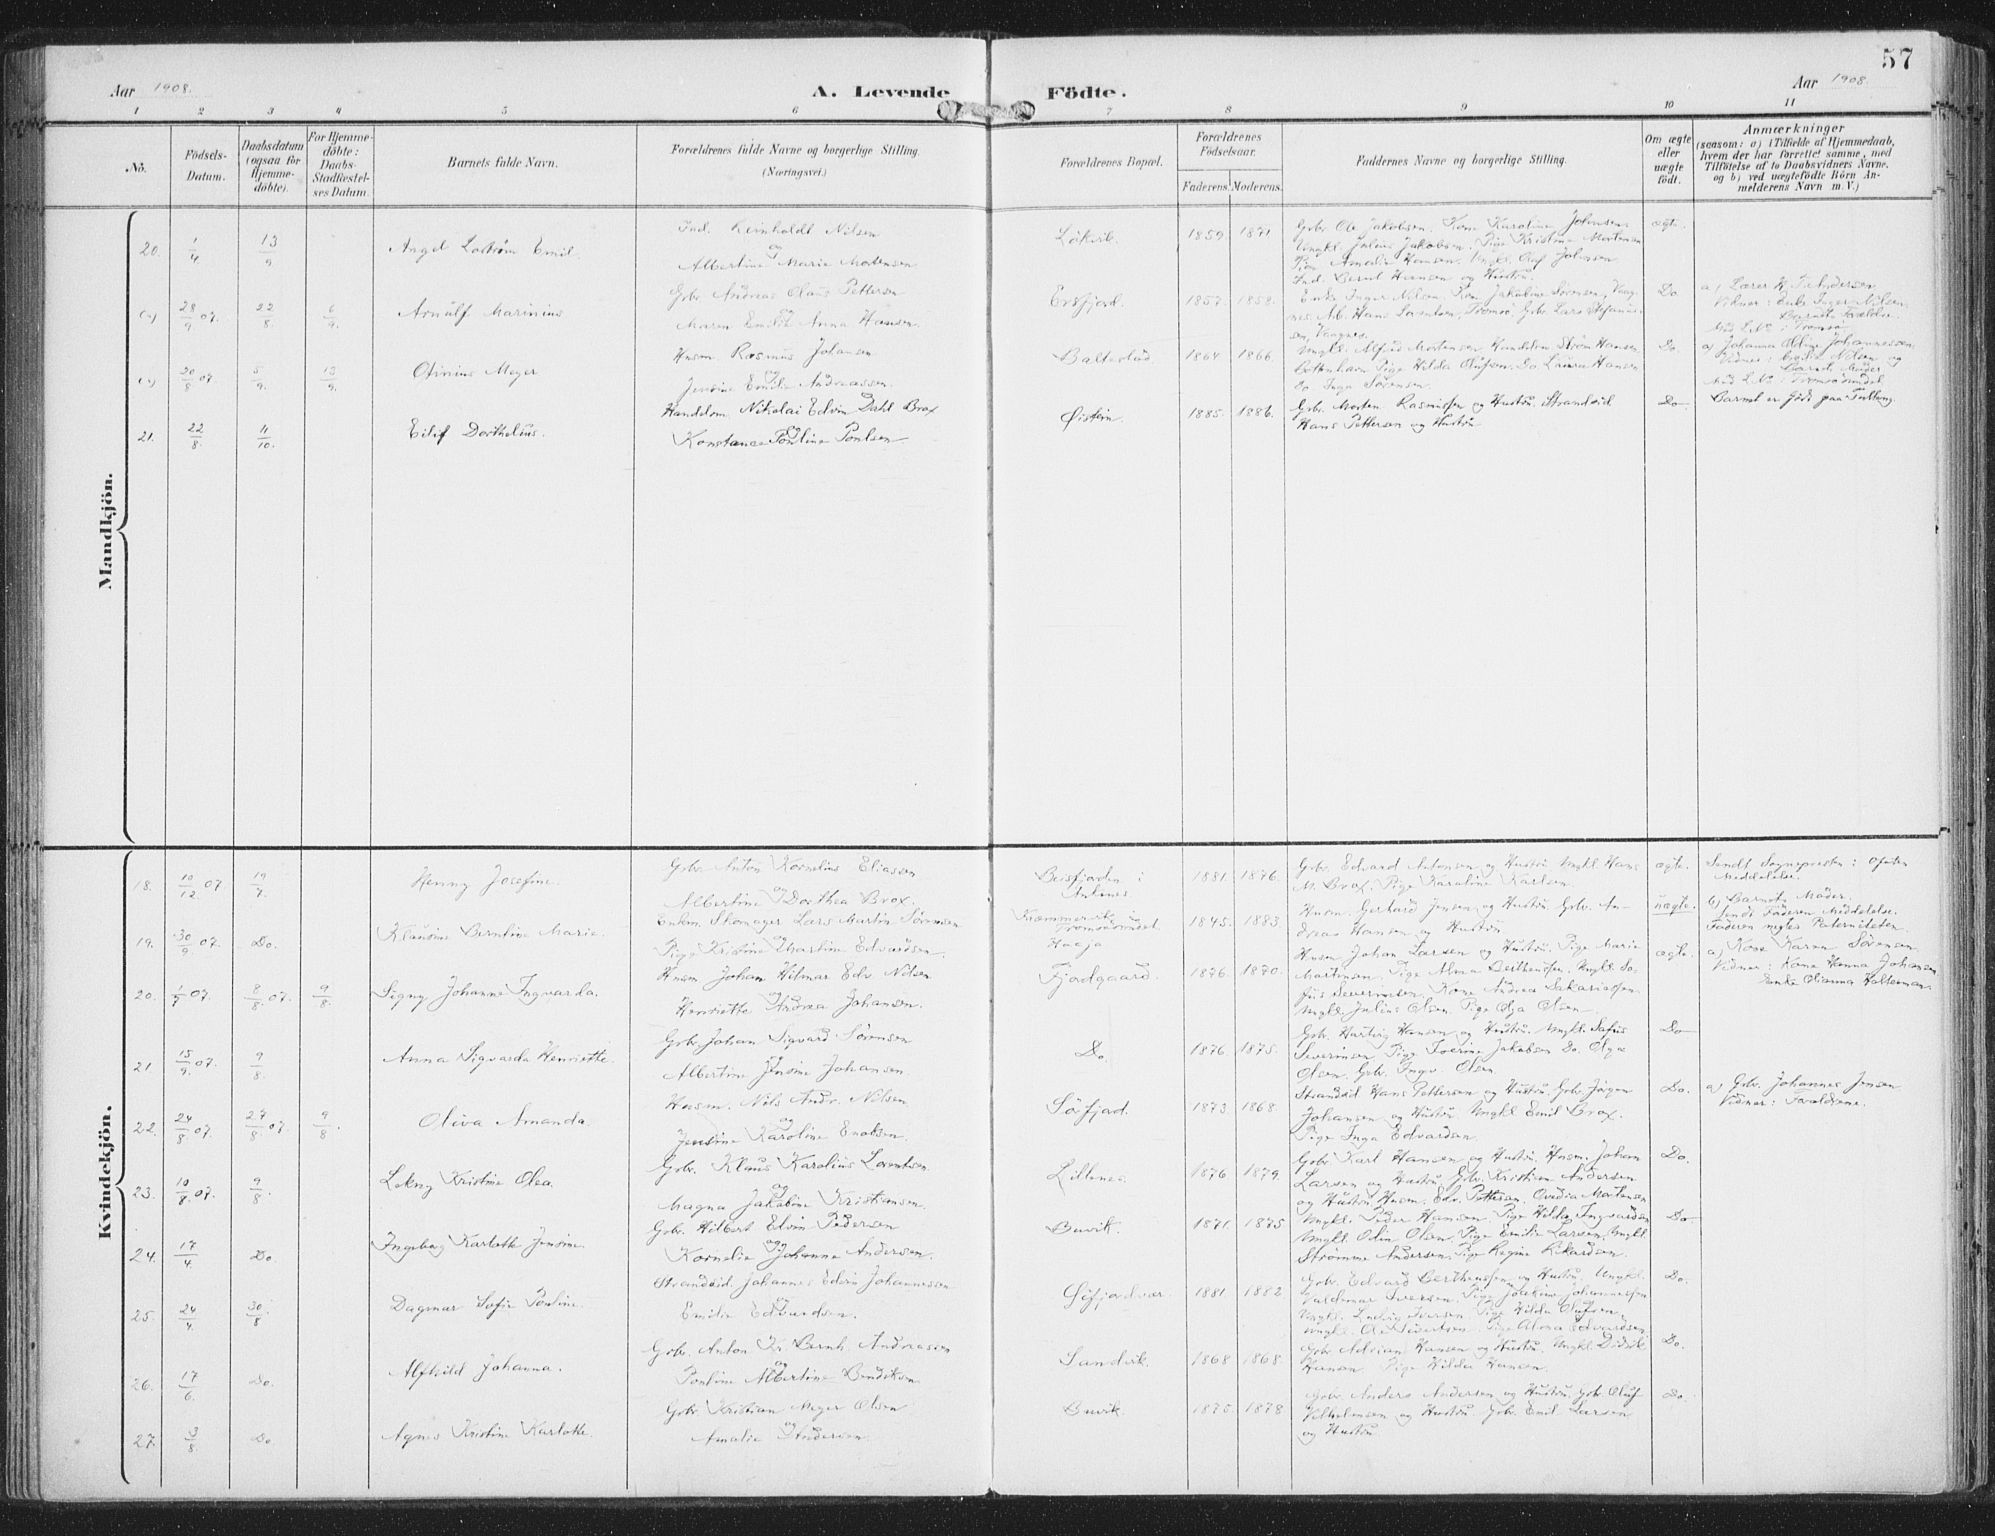 57
Aar 1908.
A. Levende Födte.
Aar 1908.
1 2 3 4 5 6 7 8 9 10 11
No.
Födsels-Datum.
Daabsdatum (ogsaa for Hjemme-döbte).
For Hjemme-döbte: Daabs-Stadfæstel-ses Datum.
Barnets fulde Navn.
Forældrenes fulde Navne og borgerlige Stilling.
(Næringsvei.)
Forældrenes Bopæl.
Forældrenes Födselsaar.
Faderens. Moderens.
Faddernes Navne og borgerlige Stilling.
Om ægte eller uægte födt.
Anmærkninger
(saasom: a) i Tilfælde af Hjemmedaab,
hvem der har forrettet samme, med
Tilföielse af to Daabsvidners Navne,
og b) ved uægtefödte Börn An-
melderens Navn m. V.)
Mandkjön.
20. 1/4 13/9 Emil. Ind. Reinholdt Nilsen
og
Albertine Marie Mortensen
Løkvik. 1859. 1871
Gbr. Ole Jakobsen. Kone Karoline Johnsen
Ungkl. Julius Jakobsen. Pige Kristine Mortensen
Pige Amalie Hansen. Ungkl. Olaf Johnsen
Ind. Bernt Hansen og Hustru.
ægte.
28/9 07. 22/8. 6/9. Arnulf Marinius
Gbr. Andreas Olaus Pettersen
og
Maren Emilie Anna Hansen.
Ersfjord. 1857. 1858.
Enke Inger Nilsen, Kone Jakobine Sörensen, Vaag-
nes. Arb. Hans Sörensen, Tromsø. Gbr. Lars Stefanus-
sen, Vaagnes.
Do
a) Lærer Andersen
Vidner: Enke Inger Nilsen
Barnets Forældre.
20/8 07. 5/9. 13/9. Otinius Meyer
Husm. Rasmus Johansen
og
Jensine Emilie Andreassen.
Baltestad 1864 1866
Ungkl. Alfred Mortensen Handelsm. Ström Hansen
Bottenhavn Pige Hilda Olufsen. Do. Laura Hansen
Do Inga Sörensen.
Do
a) Johanna Oline Johannessen
Vidner: Nilsen og
Barnets Moder
21. 22/8. 4/10. Eilif Dorthelius.
Handelsm. Nikolai Edvin Dahl Brox
og
Konstance Pouline Poulsen
Øistein. 1885. 1886.
Gbr. Morten Rasmussen og Hustru. Strandsid
Hans Pettersen og Hustru
Do
Barnet er födt paa
Kvindekjön.
18. 10/12 07 19/7. Henny Josefine.
Gbr. Anton Kornelius Eliassen
og
Albertine Dorthea Brox.
Beisfjorden i Ankenes. 1881. 1876.
Gbr. Edvard Antonsen og Hustru. Ungkl. Hans
M. Brox. Pige Karoline Karlsen.
ægte.
Sendt Sognepresten i Ofoten
Meddelelse.
19. 30/9 07. Do. Klausine Berntine Marie.
Enkm. Skomager Lars Martin Sörensen
Pige Kristine Martine Edvardsen.
Kræmmervik i
Tromsøsundet
1845. 1883.
Husm. Gerhard Jensen og Hustru. Gbr. An-
dreas Hansen og Hustru
uægte.
b) Barnets Moder.
Sendt Faderen Meddelelse.
Faderen negter Paterniteten.
20. 1/7 07. 8/8 07. 9/8 Signy Johanne Ingvarda.
Husm Johan Hilmar Edv. Nilsen
og
Henriette Andrea Johansen.
Fjordgaard. 1876. 1870.
Husm. Johan Larsen og Hustru. Pige Marie
Martinsen. Pige Alma Bertheussen. Ungkl. So-
fus Severinsen. Kone Andrea Sakariassen.
Ungkl. Julius Olsen. Pige Olga Olsen
ægte.
a) Kone Karen Sörensen
Vidner: Kone Hanna Johansen
Enke Olianna Halterman.
21 15/9 07. 9/8. Anna Sigvarda Henriette.
Gbr. Johan Sigvard Sörensen
og
Albertine Jensine Johansen.
Do. 1876. 1875.
Gbr. Hartvig Hansen og Hustru. Ungkl. Sofus
Severinsen. Pige Jakobsen Do. Olga
Olsen. Gbr. Ingv. Olsen.
Do
22. 24/8 07. 27/8 07. 9/8. Oliva Amanda.
Husm. Nils Andr. Nilsen
og
Jensine Karoline Enoksen.
Sörfjord. 1873. 1868.
Strandsid Hans Pettersen og Hustru. Gbr. Jörgen
Johansen og Hustru. Ungkl. Emil Brox.
Pige Inga Edvardsen.
Do.
a) Gbr. Johannes Jensen
Vidner: Forældrene.
23. 10/8 07. 9/8. Kristine Olea.
Gbr. Klaus Karolius Lorentsen.
og
Magna Jakobine Kristiansen.
Lillenes. 1876 1879.
Gbr. Karl Hansen og Hustru. Husm. Johan
Larsen og Hustru. Gbr. Kristian Andersen
og Hustru. Husm. Edv. Pettersen, Ovedia Mortensen
Do.
24. 17/4 Do. Ingeborg Karlotte Jensine.
Gbr. Hilbert Edvin Pedersen
og
Kornelie Johanne Andersen.
Buvik. 1871. 1875
Ungkl. Peder Hansen. Pige Hilda Ingvardsen
Ungkl. Odin Olsen. Pige Emilie Larsen. Ungkl.
Strömme Andersen. Pige Regine Rikardsen.
Do
25. 24/4. 30/8 Dagmar Sofie Pouline.
Strandsid. Johannes Edvin Johannessen
og
Emilie Edvardsen.
Øifjordvær. 1881. 1882.
Gbr. Edvard Berthenssen og Hustru. Ungkl.
Valdemar Iversen. Pige Joakine Johannessen
Ungkl. Ludvig Iversen. Pige Hilda Olufsen.
Ungkl. Ole Sivertsen. Pige Alma Edvardsen.
Do.
26. 17/6. Do. Alfhild Johanna.
Gbr. Anton Kr. Bernh. Andreasen
og
Pouline Albertine Bendiksen
Sandvik. 1868 1868.
Gbr. Adrian Hansen og Hustru. Ungkl. Didrik
Hansen. Pige Hilda Hansen.
Do.
27. 3/8. Do. Agnes Kristine Karlotte.
Gbr. Kristian Meyer Olsen
og
Amalie Andersen.
Buvik. 1875. 1878
Gbr. Anders Andersen og Hustru. Gbr. Oluf
Vilhelmsen og Hustru. Gbr. Emil Larsen
og Hustru
Do.